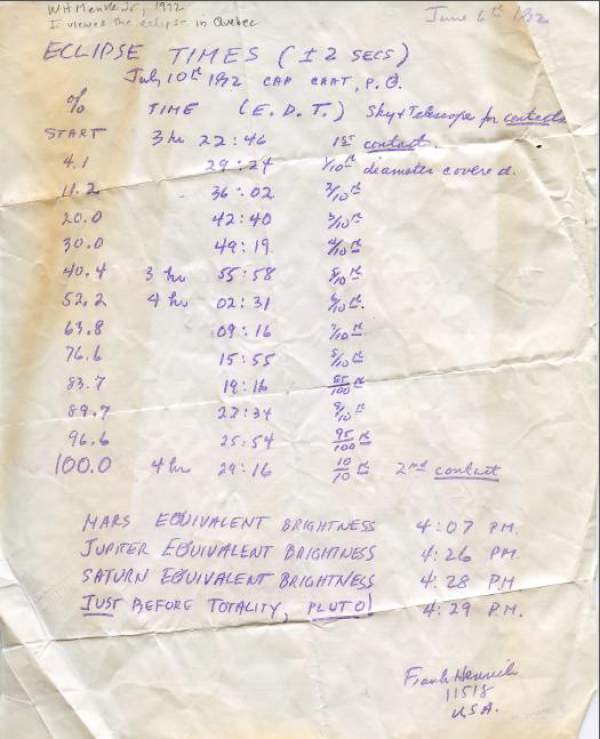 WH Menke Jr, 1972
I viewed the eclipse in Quebec
June 6th 1972
ECLIPSE TIMES (±2 SECS)
July 10th 1972 CAP CHAT, P.Q.
% TIME (E.D.T.) Sky & Telescope for contacts
START 3 hr 22:46 1st contact.
4.1 29:24 1/10th diameter covered.
11.2 36:02 2/10th
20.0 42:40 3/10th
30.0 49:19 4/10th
40.4 3 hr 55:58 5/10th
52.2 4 hr 02:31 6/10th.
63.8 09:16 7/10th
76.6 15:55 8/10th
83.7 19:16 85/100th
89.7 22:34 9/10th
96.6 25:54 95/100th
100.0 4 hr 29:16 10/10th 2nd contact
MARS EQUIVALENT BRIGHTNESS 4:07 PM.
JUPITER EQUIVALENT BRIGHTNESS 4:26 PM.
SATURN EQUIVALENT BRIGHTNESS 4:28 PM
JUST BEFORE TOTALITY, PLUTO! 4:29 P.M.
Frank
11518
USA.